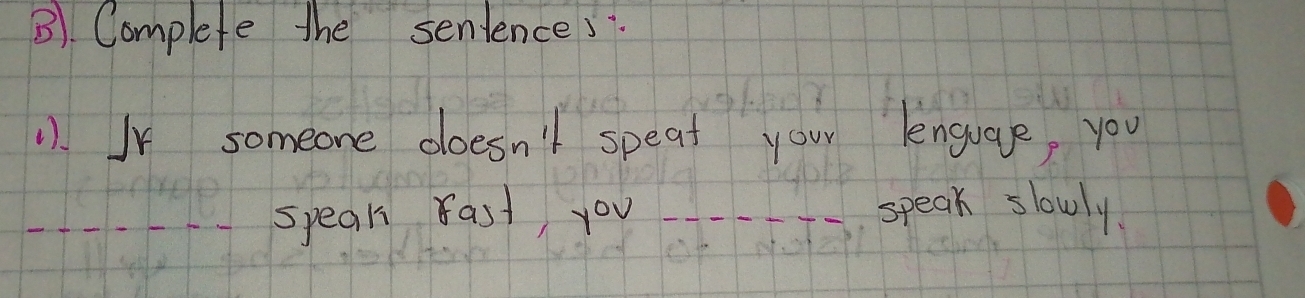 B). Complete the sentences:
1). If someone doesn't speat your lenguage, you
------- speak fast, you ------- speak slowly.